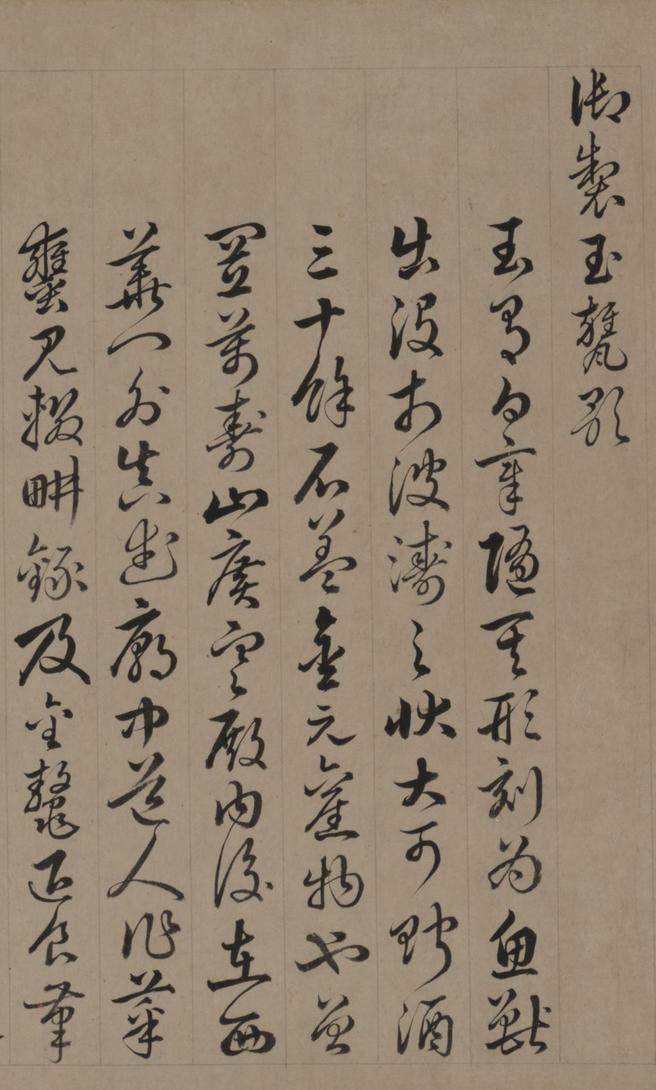 御製玉甕歌
玉有白章隨其形刻為魚獸
出没於波濤之狀大可貯酒
三十餘石蓋金元舊物也曾
置萬壽山廣寒殿內後在西
華門外真武廟中道人作菜
甕見輟畊錄及金鰲退食筆